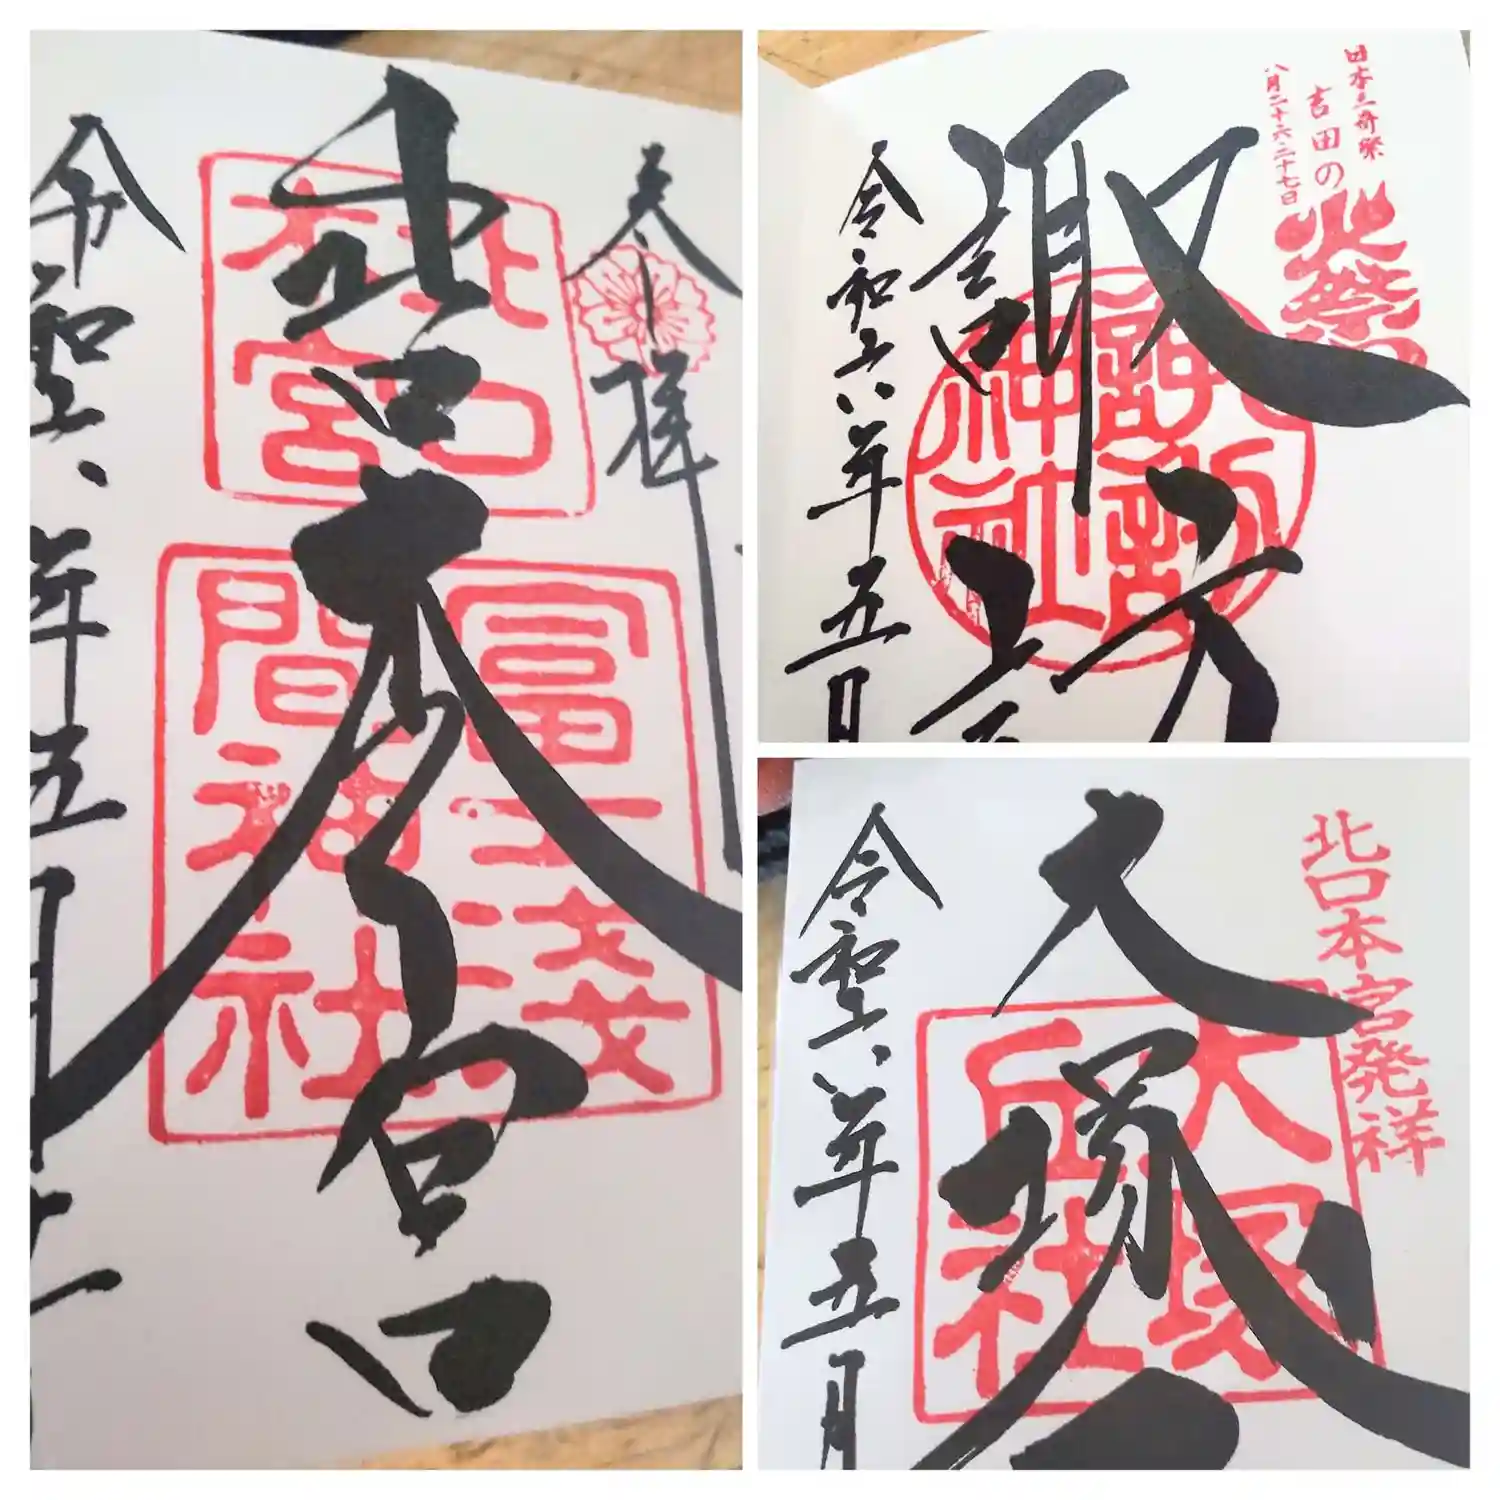 奉拝
北口本宮
北口
本宮
冨士浅
間神社
令和六年五月
日本三奇祭
吉田の火祭
八月二十六二十七日
諏訪
諏訪
神社
令和六年五月
北口本宮発祥
大塚
大塚
丘社
令和六年五月